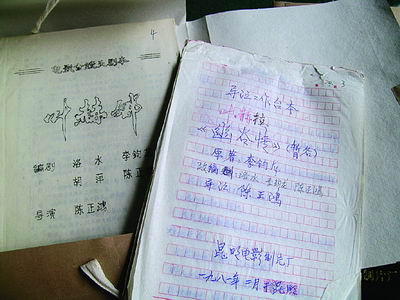 4
电影分镜头剧本
叶赫娜
编剧 洛水 李钧
胡萍 陈正
导演 陈正鸿
导演工作台本
《幽谷情》(暂名)
原著 李钧龙
改编 洛水 陈正鸿
导演 陈正鸿
昆明电影制片厂
一九八一年二月 昆明